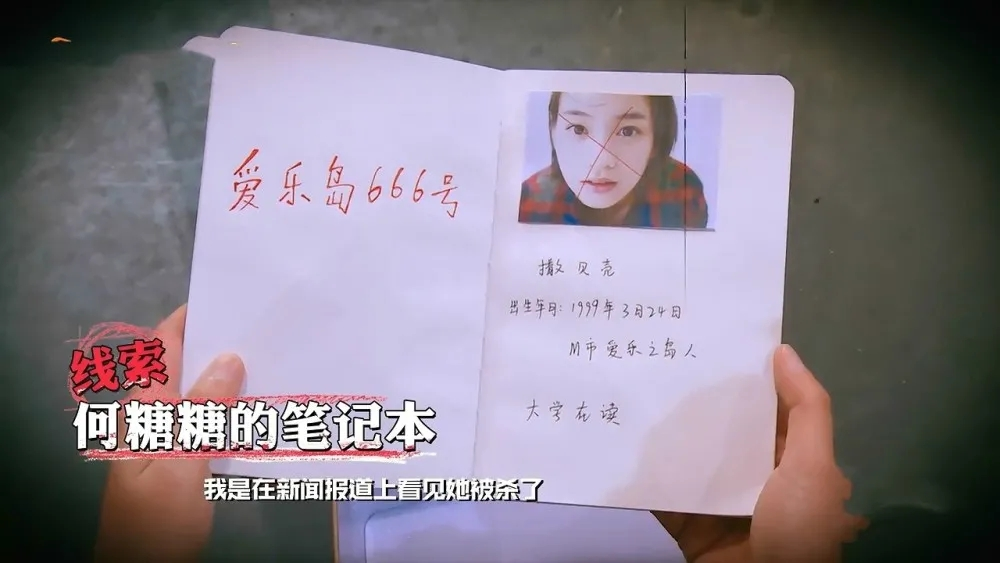 爱乐岛666号
撒贝壳
出生年日：1999年3月24日
M市爱乐之岛人
大学在读
线索
何糖糖的笔记本
我是在新闻报道上看见她被杀了